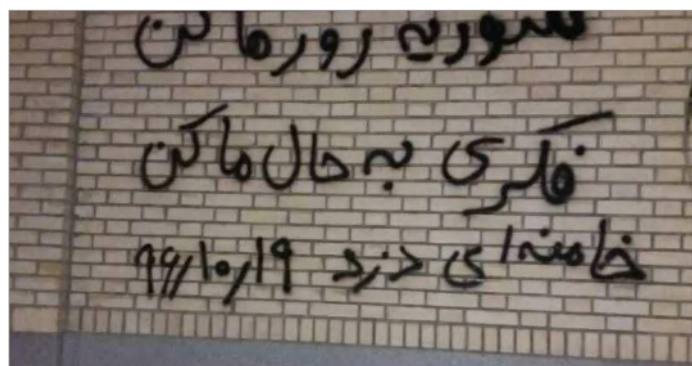 سوریه رو رها کن
فکری به حال ما کن
خامنه ای دزد ۹۹/۱۰/۱۹